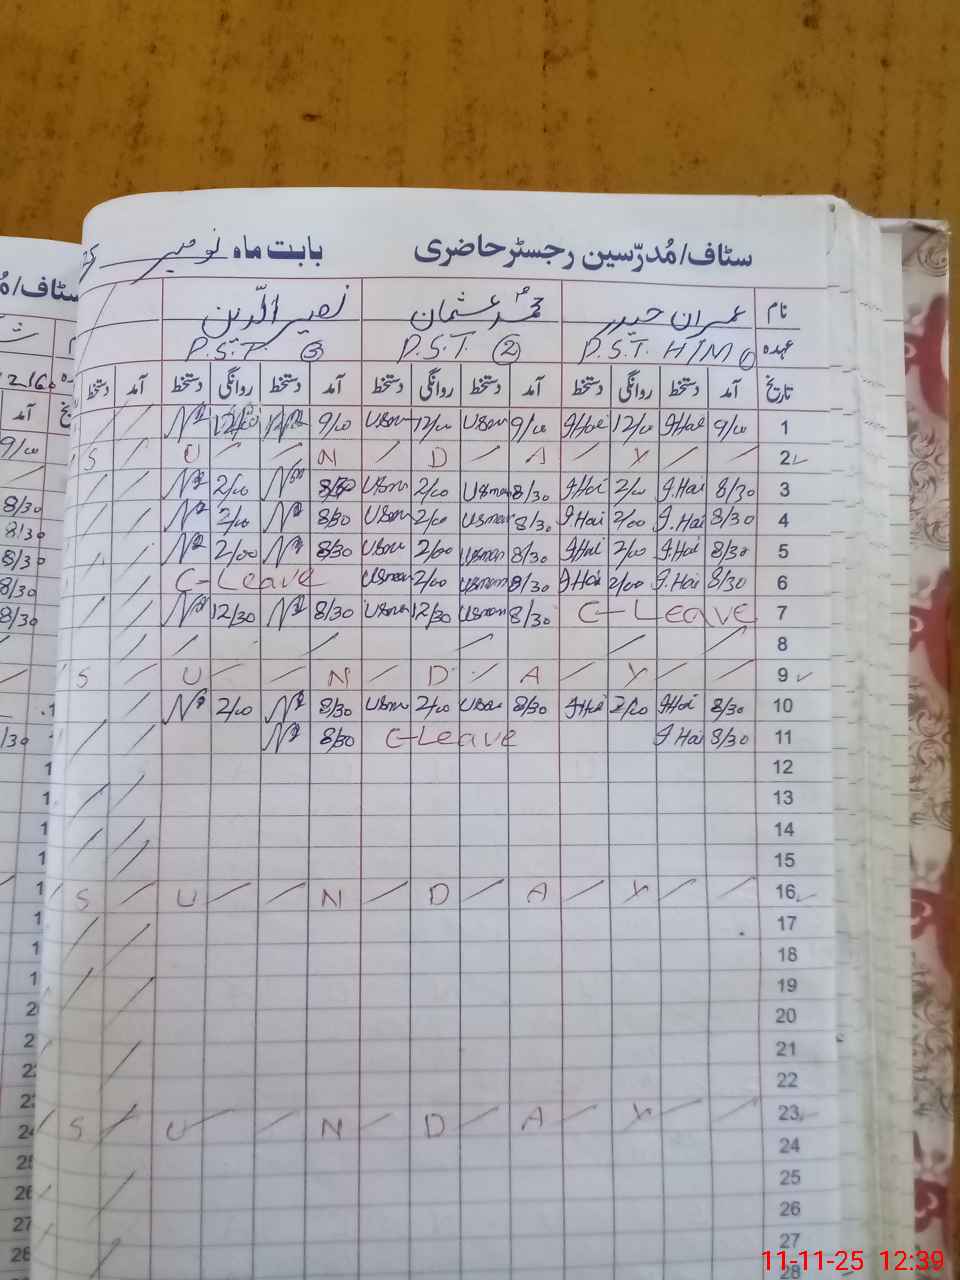 سٹاف/مُدرّسین رجسٹر حاضری بابت ماہ نومبر
نام عمران حیدر محمد عثمان نصیر الدین
عہدہ P.S.T. H/M P.S.T. ② P.S.T. ③
تاریخ آمد دستخط روانگی دستخط آمد دستخط روانگی دستخط آمد دستخط روانگی دستخط آمد دستخط
1 9/00 I.Hai 12/00 I.Hai 9/00 Usman 12/00 Usman 9/00 12/00
2 S U N D A Y
3 8/30 I.Hai 2/00 I.Hai 8/30 Usman 2/00 Usman 8/30 2/00
4 8/30 I.Hai 2/00 I.Hai 8/30 Usman 2/00 Usman 8/30 2/00
5 8/30 I.Hai 2/00 I.Hai 8/30 Usman 2/00 Usman 8/30 2/00
6 8/30 I.Hai 2/00 I.Hai 8/30 Usman 2/00 Usman C-Leave
7 C-Leave 8/30 Usman 12/30 Usman 8/30 12/30
8
9 S U N D A Y
10 8/30 I.Hai 2/00 I.Hai 8/30 Usman 2/00 Usman 8/30 2/00
11 8/30 I.Hai C-Leave 8/30
12
13
14
15
16 S U N D A Y
17
18
19
20
21
22
23 S U N D A Y
24
25
26
27
28
11-11-25 12:39